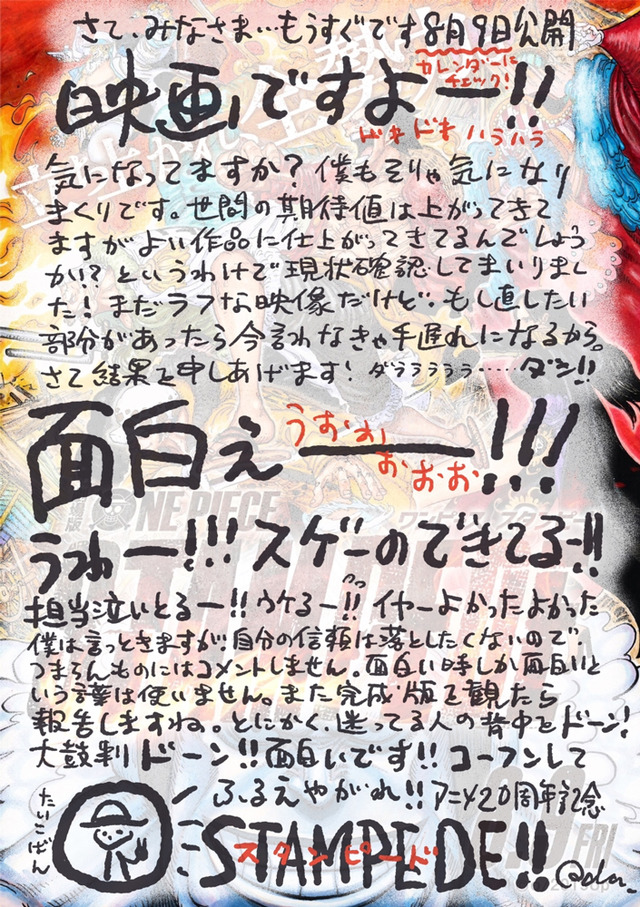 さて、みなさま…もうすぐです8月9日公開
カレンダーに
チェック!
映画ですよー!!
ドキドキハラハラ
気になってますか?僕もそりゃ気になり
まくりです。世間の期待値は上がってきて
ますがよい作品に仕上がってきてるんでしょう
かい?というわけで現状確認してまいりまし
た!まだラフな映像だけど。もし直したい
部分があったら今言わなきゃ手遅れになるから。
さて結果を申しあげます!ダララララララ……ダン!!
面白ぇ
うおおぉ
おおお
ー!!!
うわー!!!スゲーのできてるー!!
担当泣いとるー!!ウケるー!!イヤーよかったよかった
僕は言っときますが、自分の信頼は落としたくないので
つまらんものにはコメントしません。面白い時しか面白いと
いう言葉は使いません。また完成版を観たら
報告しますね。とにかく、迷ってる人の背中をドーン!
太鼓判ドーン!!面白いです!!コーフンして
ふるえやがれ!!アニメ20周年記念
たいこばん
STAMPEDE!!
スタンピード
Oda
ONE PIECE
FRI